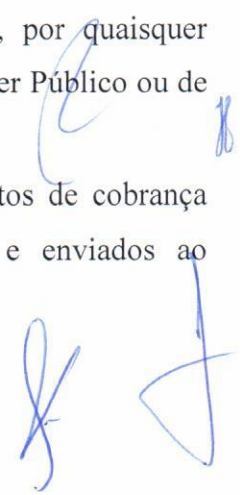 , por quaisquer
er Público ou de
tos de cobrança
e enviados ao